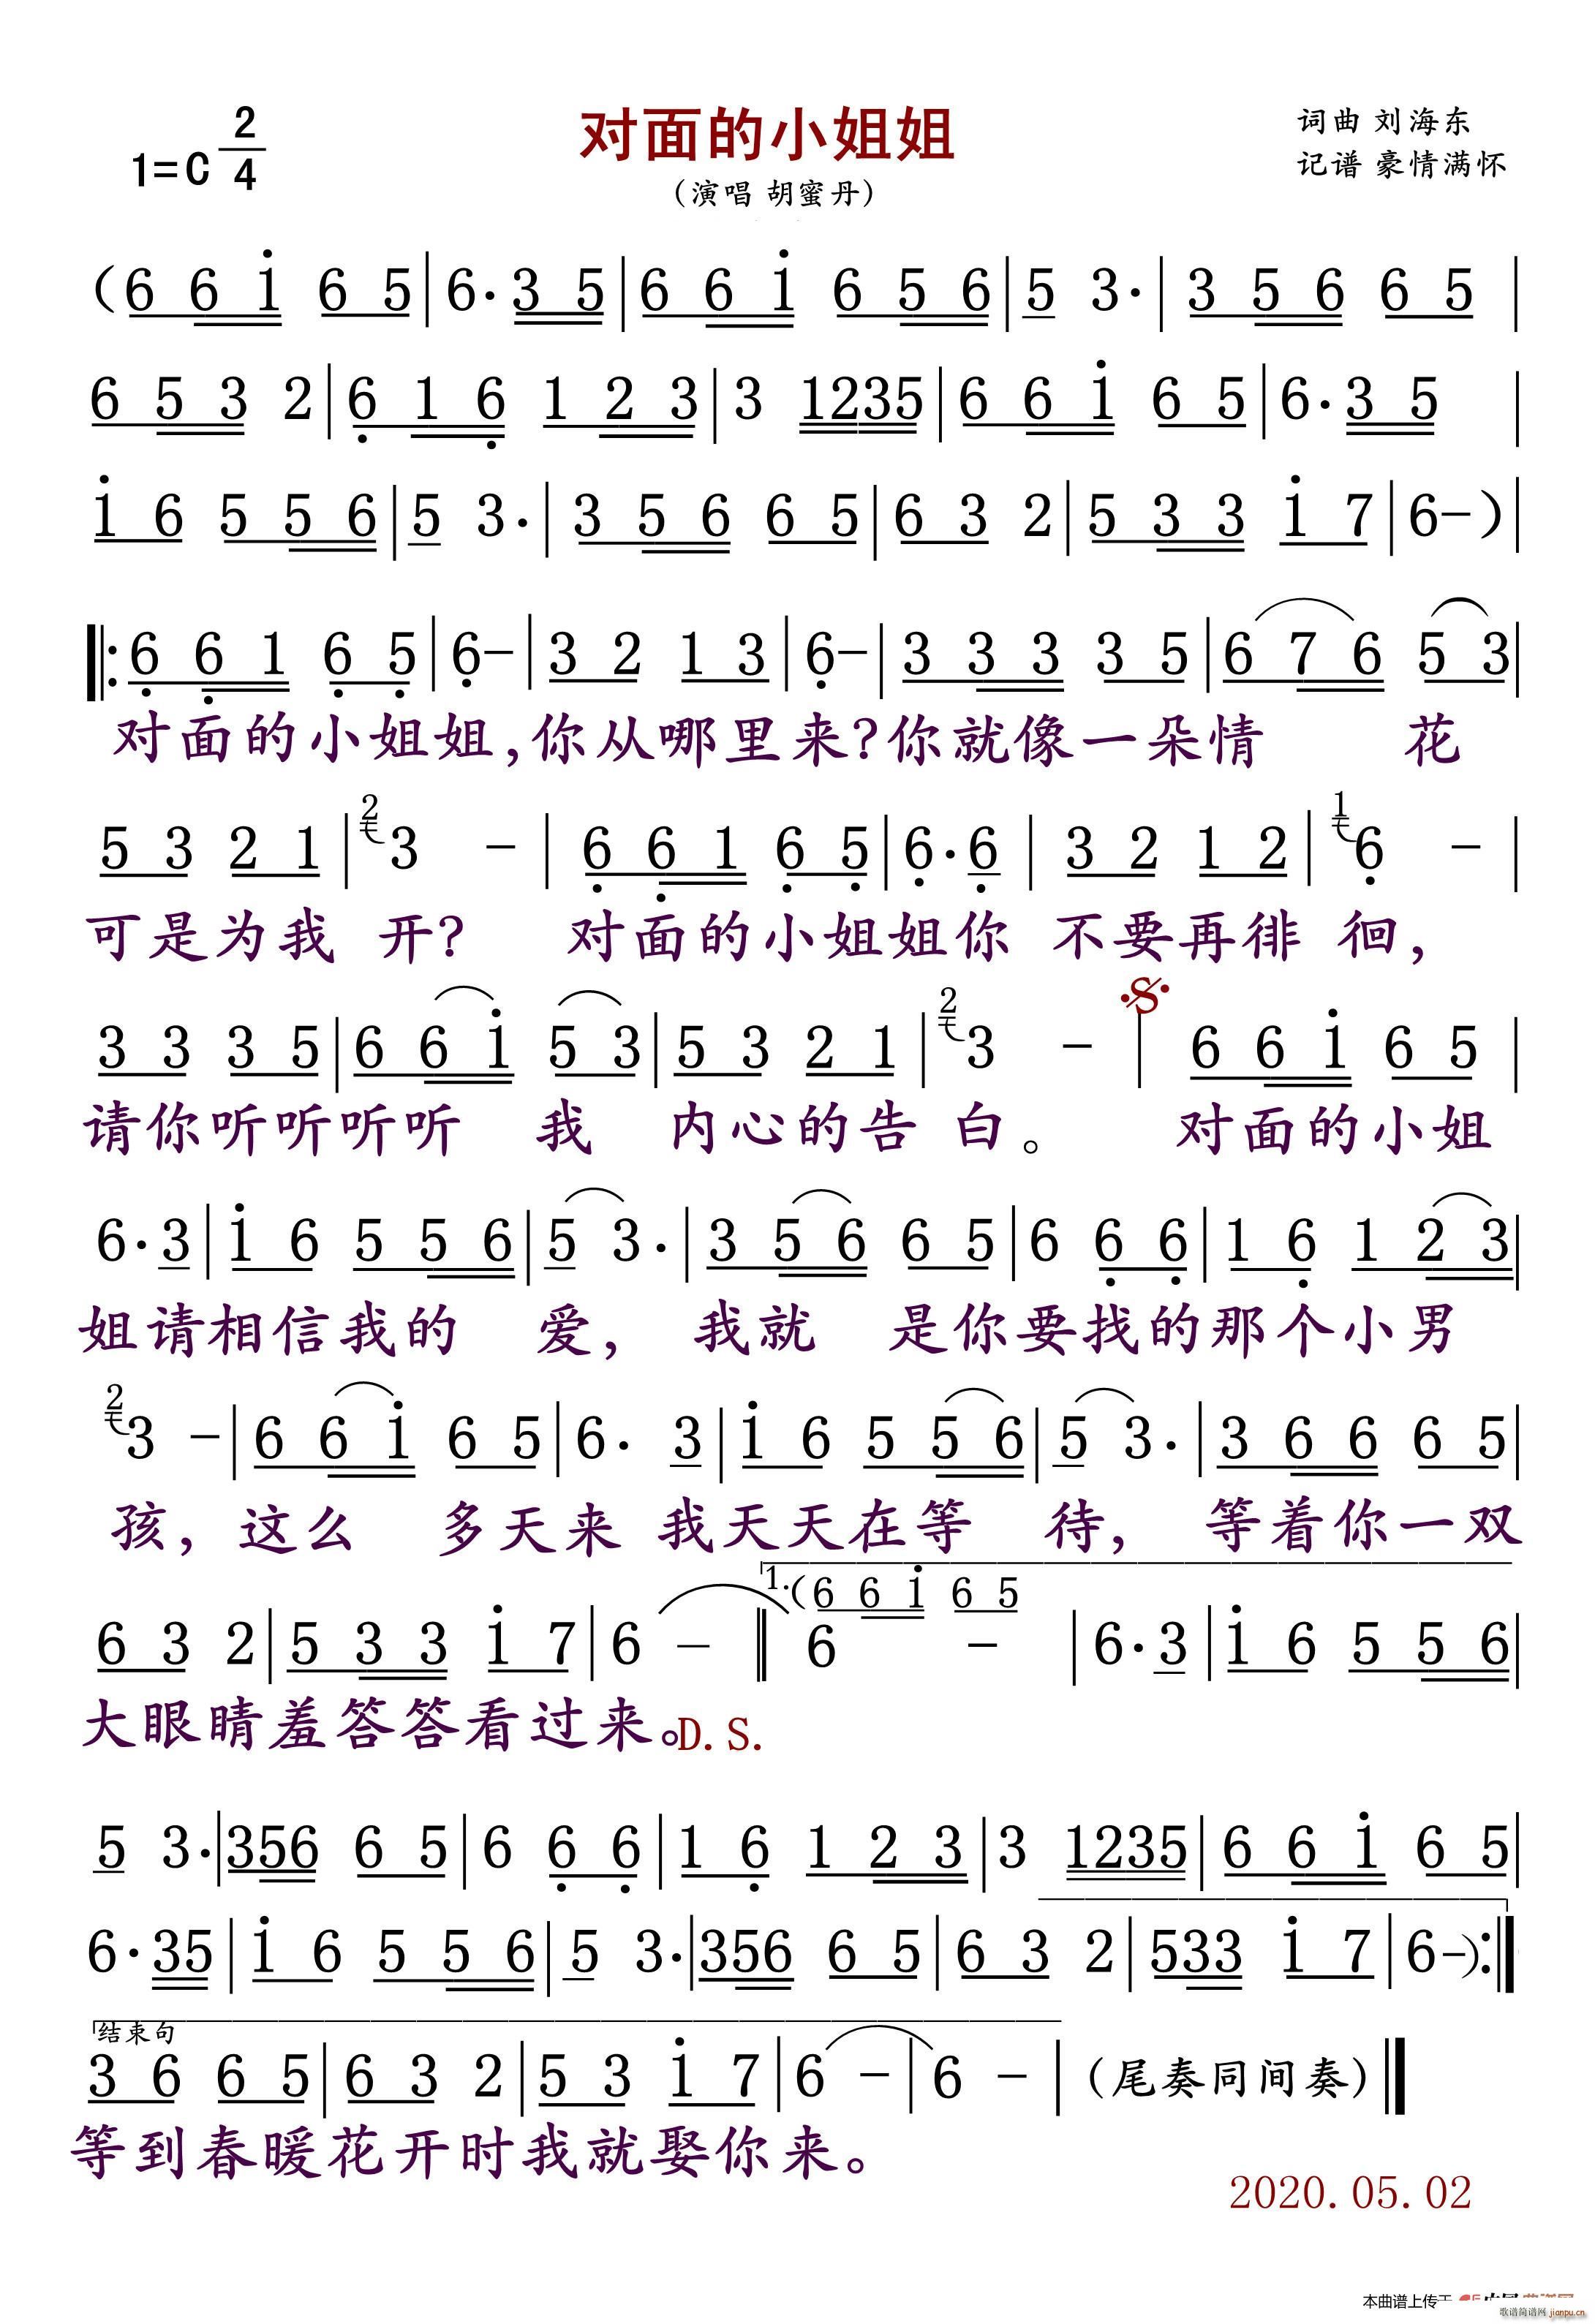 对面的小姐姐
1=C 2/4
(演唱 胡蜜丹)
词曲 刘海东
记谱 豪情满怀
(6 6 i 6 5|6·3 5|6 6 i 6 5 6|5 3·|3 5 6 6 5|
6 5 3 2|6 1 6 1 2 3|3 1235|6 6 i 6 5|6·3 5|
i 6 5 5 6|5 3·|3 5 6 6 5|6 3 2|5 3 3 i 7|6-)|
‖:6 6 1 6 5|6-|3 2 1 3|6-|3 3 3 3 5|6 7 6 5 3|
对面的小姐姐,你从哪里来?你就像一朵情 花
5 3 2 1|2 3 -|6 6 1 6 5|6·6|3 2 1 2|1 6 -|
可是为我 开? 对面的小姐姐你 不要再徘 徊,
3 3 3 5|6 6 i 5 3|5 3 2 1|2 3 -|6 6 i 6 5|
请你听听听听 我 内心的告 白。 对面的小姐
6·3|i 6 5 5 6|5 3·|3 5 6 6 5|6 6 6|1 6 1 2 3|
姐请相信我的 爱, 我就 是你要找的那个小男
2 3 -|6 6 i 6 5|6· 3|i 6 5 5 6|5 3·|3 6 6 6 5|
孩, 这么 多天来 我天天在等 待, 等着你一双
1.(6 6 i 6 5
6 3 2|5 3 3 i 7|6 -‖6 -|6·3|i 6 5 5 6|
大眼睛羞答答看过来。D.S.
5 3·|356 6 5|6 6 6|1 6 1 2 3|3 1235|6 6 i 6 5|
6·35|i 6 5 5 6|5 3·|356 6 5|6 3 2|533 i 7|6-):‖
结束句
3 6 6 5|6 3 2|5 3 i 7|6 -|6 -|(尾奏同间奏)‖
等到春暖花开时我就娶你来。
2020.05.02
本曲谱上传于
歌谱简谱网 jianpu.cn